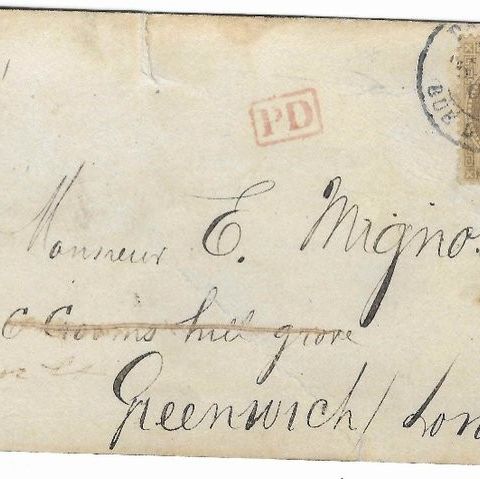 PD
RUE
Monsieur E. Migno
6 Crooms hill grove
Greenwich / Lon